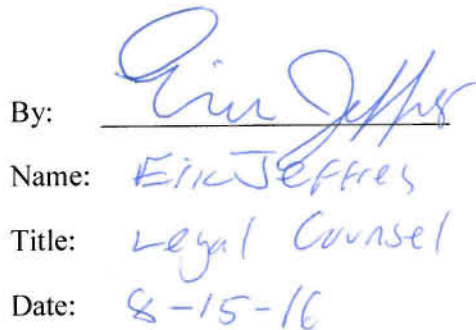 By: Eric Jeffres
Name: Eric Jeffres
Title: Legal Counsel
Date: 8-15-16